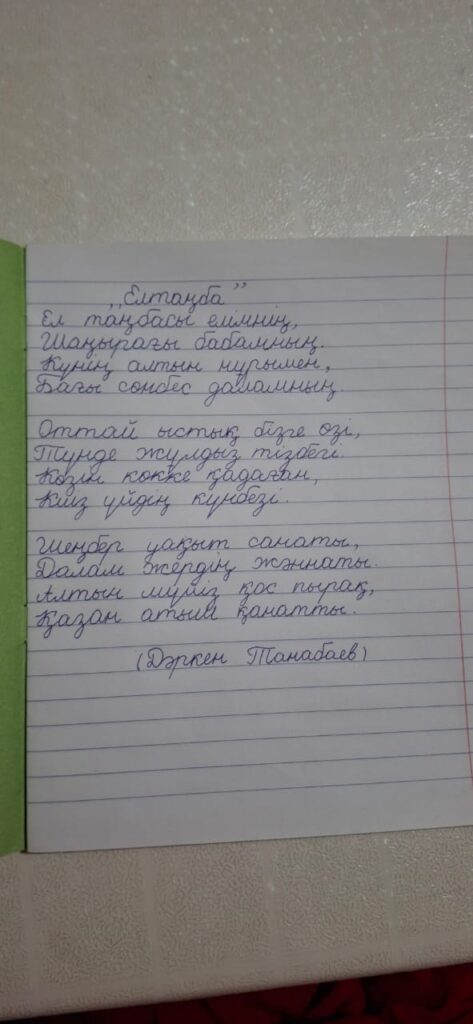 „Елтаңба”
Ел таңбасы елімнің,
Шаңырағы бабамның.
Күнің алтын нұрымен,
Бағы сөнбес даламның.
Оттай ыстық бізге өзі,
Түнде жұлдыз тізбегі.
Көзін көкке қадаған,
Киіз үйдің күнбезі.
Шеңбер уақыт санаты,
Далам жердің жәннаты.
Алтын мүйіз қос пырақ,
Қазан атым қанатты.
(Дәркен Танабаев)